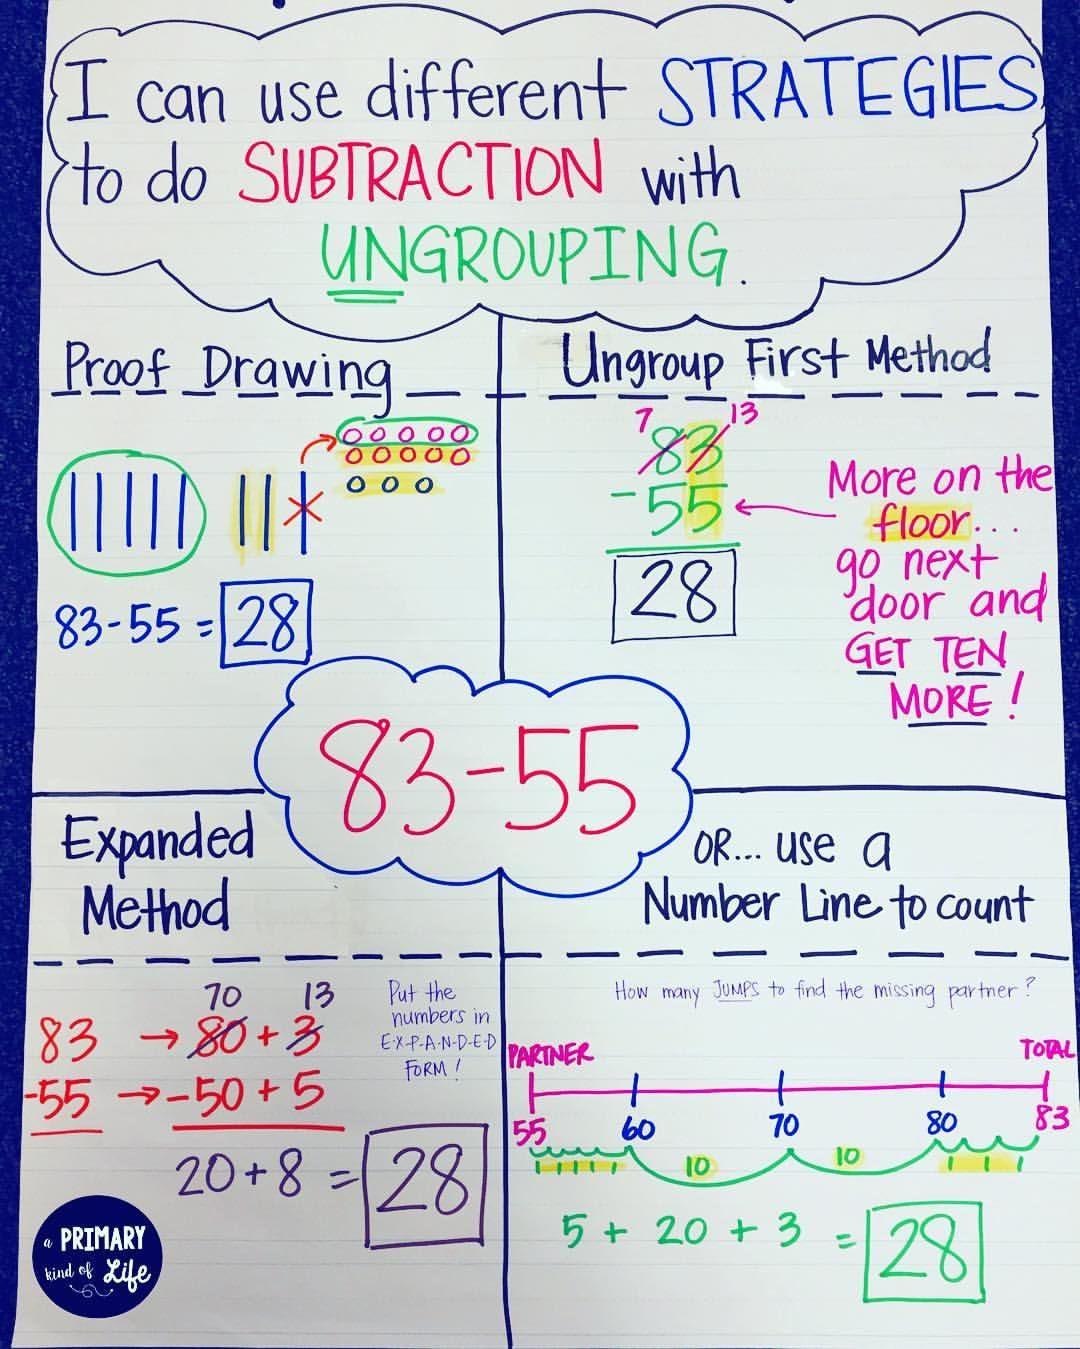 I can use different STRATEGIES
to do SUBTRACTION with
UNGROUPING.
Proof Drawing
83-55 = 28
Ungroup First Method
7 13
83
-55
28
More on the
floor...
go next
door and
GET TEN
MORE!
83-55
Expanded
Method
70 13
83 → 80 + 3
-55 → -50 + 5
20 + 8 = 28
Put the
numbers in
E-X-P-A-N-D-E-D
FORM!
OR... use a
Number Line to count
How many JUMPS to find the missing partner?
PARTNER TOTAL
55 60 70 80 83
1 1 1 1 1 10 10 1 1 1
5 + 20 + 3 = 28
a PRIMARY
kind of Life